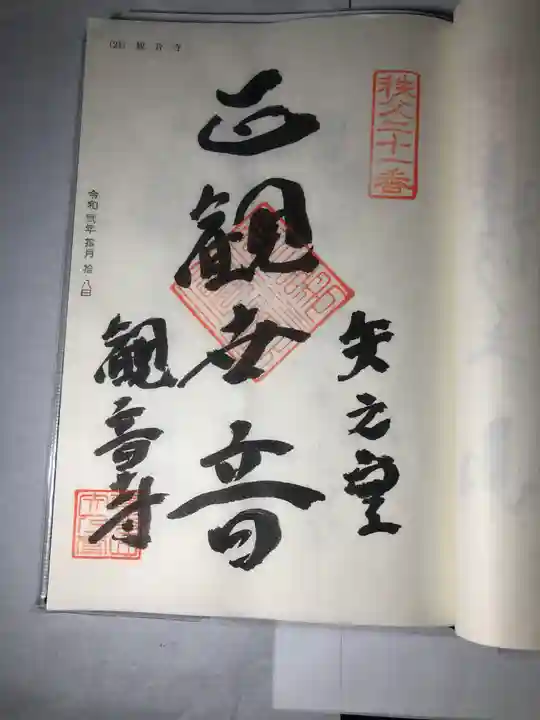 秩父二十一番
矢之堂
正観世音
観音寺
(21) 観音寺
令和弐年 拾月 拾八日